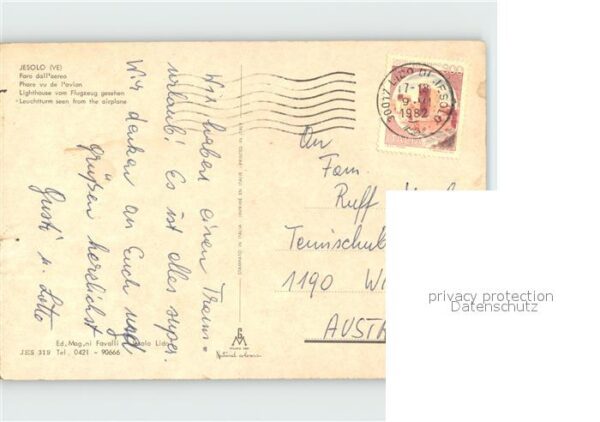 JESOLO (VE)
Faro dall'aereo
Phare vu de l'avion
Lighthouse vom Flugzeug gesehen
Leuchtturm seen from the airplane
Wir haben einen Traum=
urlaub! Es ist alles super.
Wir denken an Euch und
grüßen herzlichst
Gusti u. Lotto
Ed. Mag,ni Favalli - Jesolo Lido
JES 319 Tel. 0421 - 90666
30017 LIDO DI JESOLO
17-18
9
1982
200
An
Fam.
Ruff
Tennisschul
1190 W
AUST
privacy protection
Datenschutz